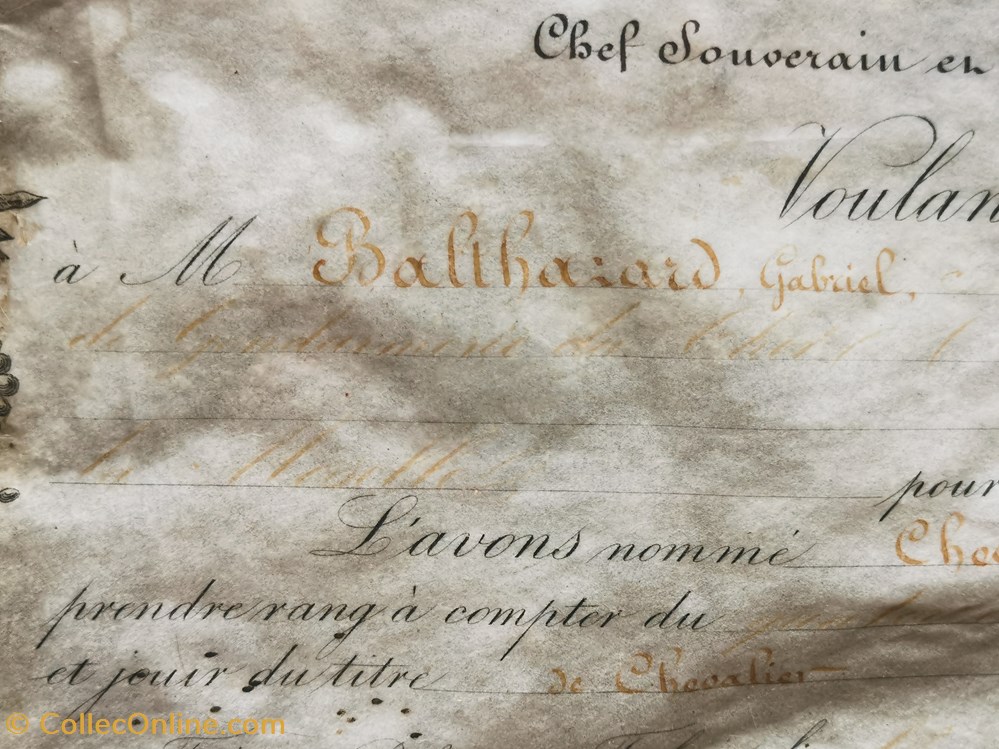 Chef Souverain en
Voulan
à M Balthazard, Gabriel,
de Gendarmerie du
la Moselle
pour
L'avons nommé Chev
prendre rang à compter du
et jouir du titre de Chevalier
© CollecOnline.com